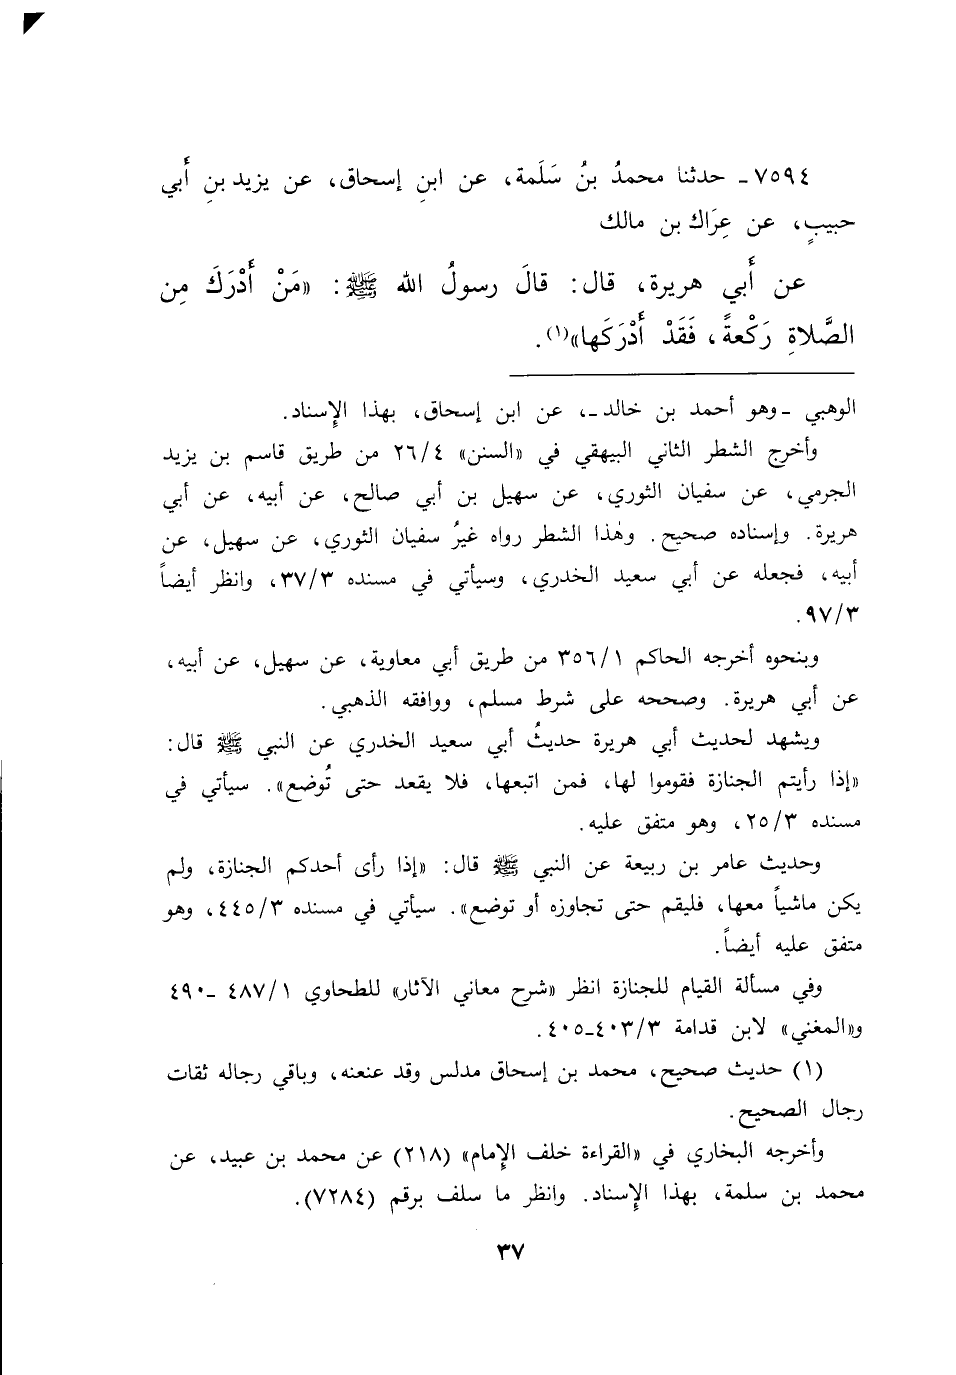 ٧٥٩٤ـ حدثنا محمدُ بنُ سَلَمة، عن ابنِ إسحاق، عن يزيد بنِ أَبي
حبيبٍ، عن عِرَاك بن مالك
عن أَبي هريرة، قال: قالَ رسولُ الله ﷺ: «مَنْ أَدْرَكَ مِن
الصَّلاةِ رَكْعةً، فَقَدْ أَدْرَكَها»(١).
الوهبي ـ وهو أحمد بن خالد ـ، عن ابن إسحاق، بهذا الإِسناد.
وأخرج الشطر الثاني البيهقي في «السنن» ٢٦/٤ من طريق قاسم بن يزيد
الجرمي، عن سفيان الثوري، عن سهيل بن أبي صالح، عن أبيه، عن أبي
هريرة. وإسناده صحيح. وهٰذا الشطر رواه غيرُ سفيان الثوري، عن سهيل، عن
أبيه، فجعله عن أبي سعيد الخدري، وسيأتي في مسنده ٣٧/٣، وانظر أيضاً
٩٧/٣.
وبنحوه أخرجه الحاكم ٣٥٦/١ من طريق أبي معاوية، عن سهيل، عن أبيه،
عن أبي هريرة. وصححه على شرط مسلم، ووافقه الذهبي.
ويشهد لحديث أبي هريرة حديثُ أبي سعيد الخدري عن النبي ﷺ قال:
«إذا رأيتم الجنازة فقوموا لها، فمن اتبعها، فلا يقعد حتى تُوضع». سيأتي في
مسنده ٢٥/٣، وهو متفق عليه.
وحديث عامر بن ربيعة عن النبي ﷺ قال: «إذا رأى أحدكم الجنازة، ولم
يكن ماشياً معها، فليقم حتى تجاوزه أو توضع». سيأتي في مسنده ٤٤٥/٣، وهو
متفق عليه أيضاً.
وفي مسألة القيام للجنازة انظر «شرح معاني الآثار» للطحاوي ٤٨٧/١ ـ٤٩٠
و«المغني» لابن قدامة ٤٠٣/٣ـ٤٠٥.
(١) حديث صحيح، محمد بن إسحاق مدلس وقد عنعنه، وباقي رجاله ثقات
رجال الصحيح.
وأخرجه البخاري في «القراءة خلف الإِمام» (٢١٨) عن محمد بن عبيد، عن
محمد بن سلمة، بهذا الإِسناد. وانظر ما سلف برقم (٧٢٨٤).
٣٧